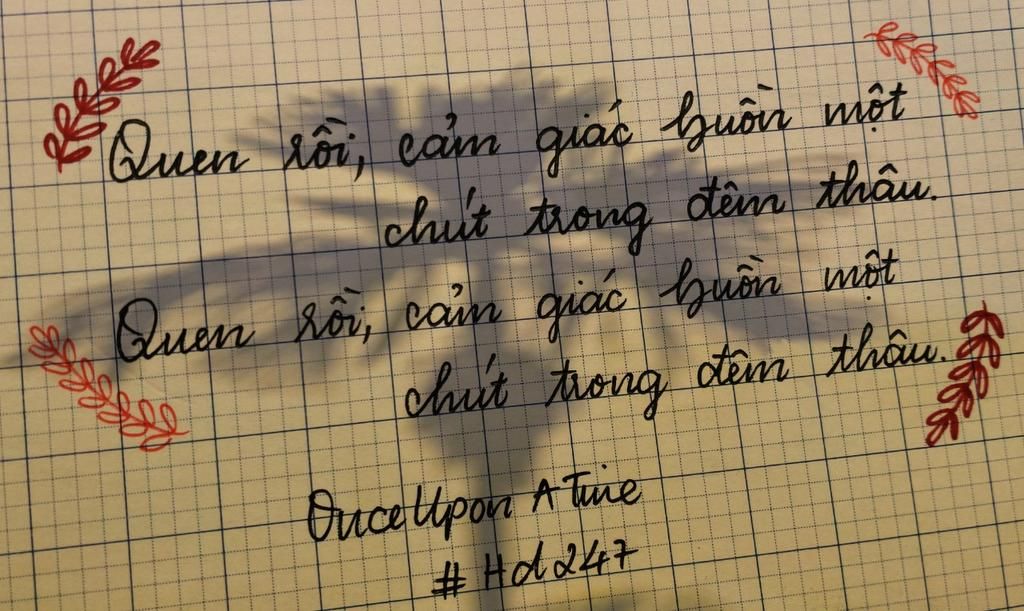 Quen rồi, cảm giác buồn một
chút trong đêm thâu.
Quen rồi, cảm giác buồn một
chút trong đêm thâu.
OnceUpon A Time
#Hd247